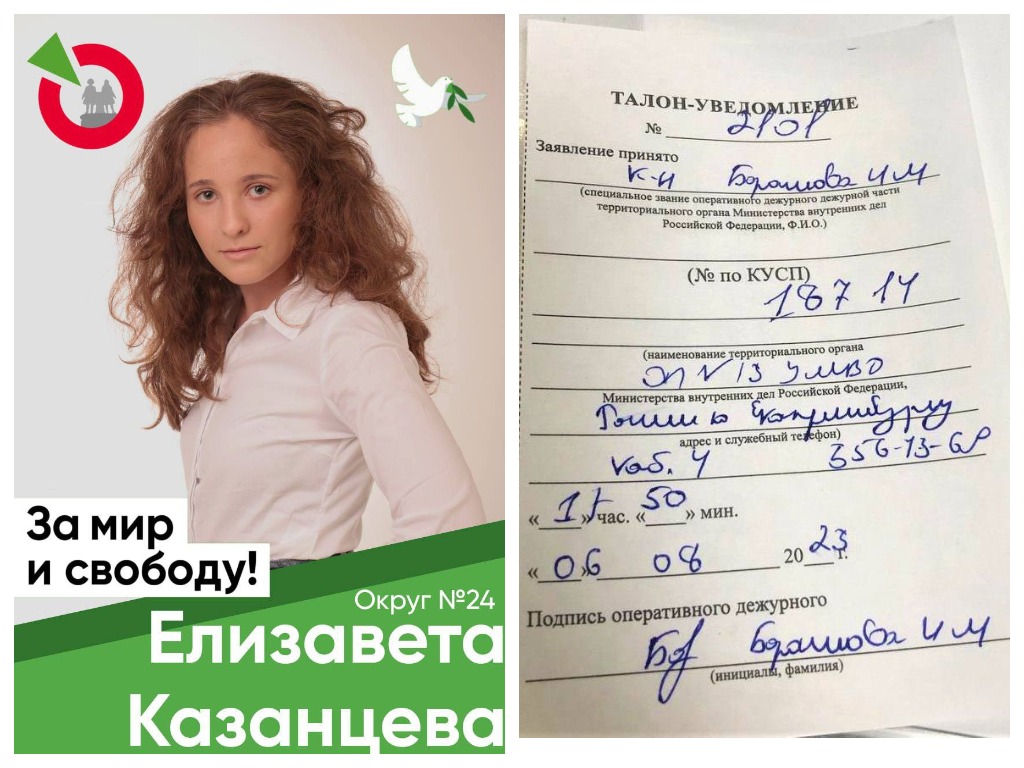 За мир
и свободу!
Округ №24
Елизавета
Казанцева
ТАЛОН-УВЕДОМЛЕНИЕ
№ 2101
Заявление принято
К-н Борашова И М
(специальное звание оперативного дежурного дежурной части
территориального органа Министерства внутренних дел
Российской Федерации, Ф.И.О.)
(№ по КУСП)
187 14
(наименование территориального органа
ОП N 13 УМВД
Министерства внутренних дел Российской Федерации,
России по Екатеринбургу
адрес и служебный телефон)
каб. 4 356-13-68
« » час. «50» мин.
«06» 08 2023 г.
Подпись оперативного дежурного
Борашова И М
(инициалы, фамилия)